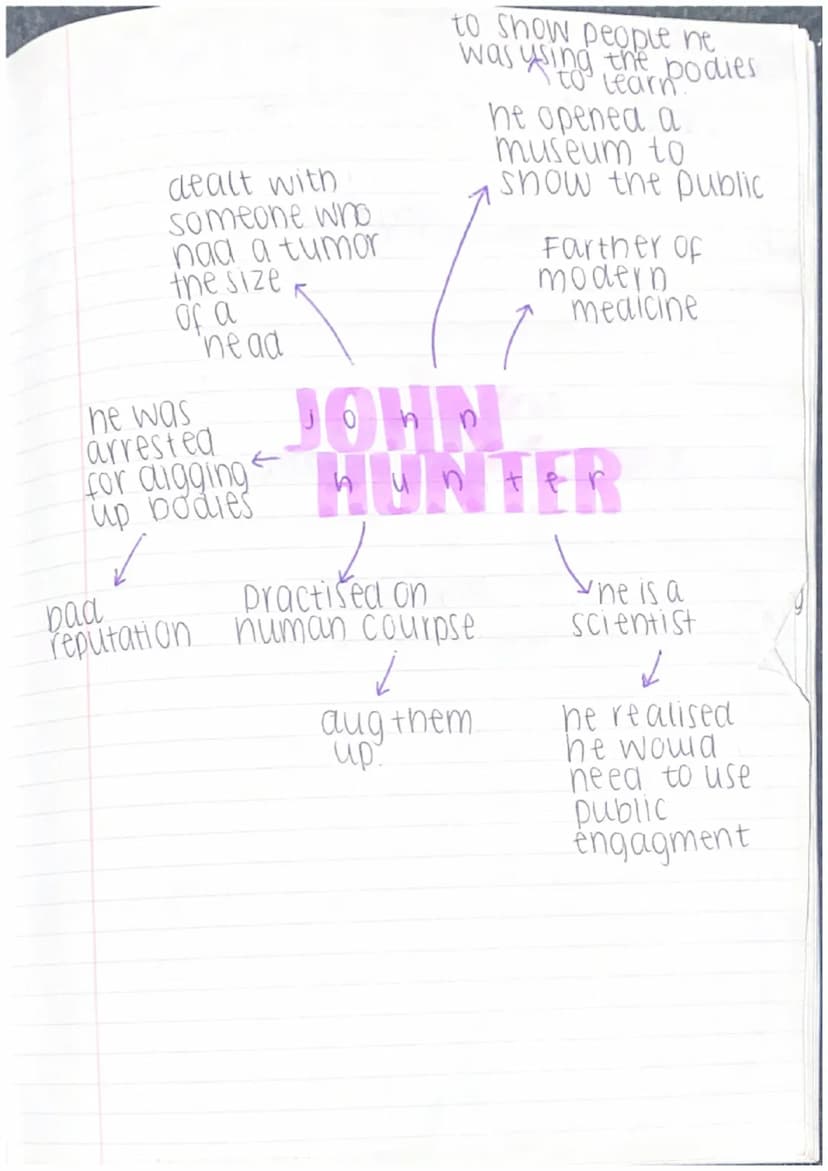 to show people he
was using the bodies
to learn.
he opened a
museum to
show the public
dealt with
someone who
had a tumor
the size
of a
head
Farther of
modern
medicine
JOHN
John
HUNTER
hunter
he was
arrested
for digging
up bodies
bad
reputation
Practised on
human courpse
dug them
up.
he is a
scientist
he realised
he would
need to use
public
engagment